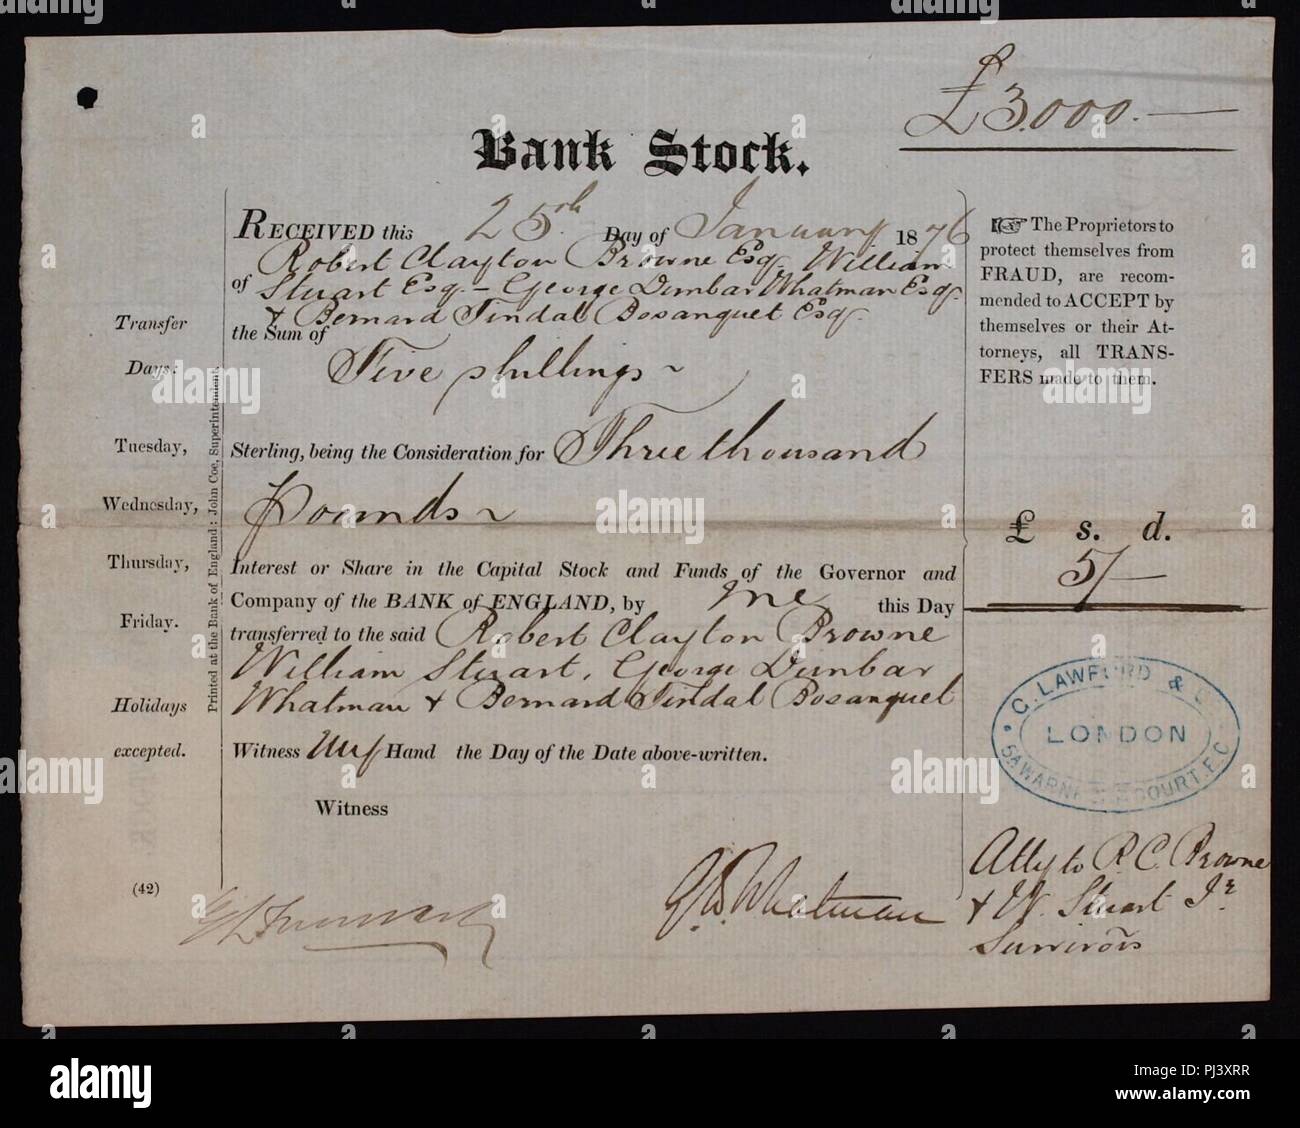 £3,000.—
Bank Stock.
RECEIVED this 25th Day of January 1876
of Robert Clayton Browne Esq William
Stuart Esq – George Dunbar Whatman Esq
& Bernard Tindal Bosanquet Esq
the Sum of
Five shillings ~
Sterling, being the Consideration for Three thousand
Pounds ~
Interest or Share in the Capital Stock and Funds of the Governor and
Company of the BANK of ENGLAND, by me this Day
transferred to the said Robert Clayton Browne
William Stuart, George Dunbar
Whatman & Bernard Tindal Bosanquet
Witness my Hand the Day of the Date above-written.
Witness
G. D. Whatman
Transfer
Days:
Tuesday,
Wednesday,
Thursday,
Friday.
Holidays
excepted.
(42)
Printed at the Bank of England: John Coe, Superintendent.
The Proprietors to
protect themselves from
FRAUD, are recom-
mended to ACCEPT by
themselves or their At-
torneys, all TRANS-
FERS made to them.
£ s. d.
5/—
C. LAWFORD &
LONDON
COURT. E.C
Atty to R. C. Browne
& W. Stuart Jr
Survivors
alamy
alamy stock photo
Image ID: PJ3XRR
www.alamy.com